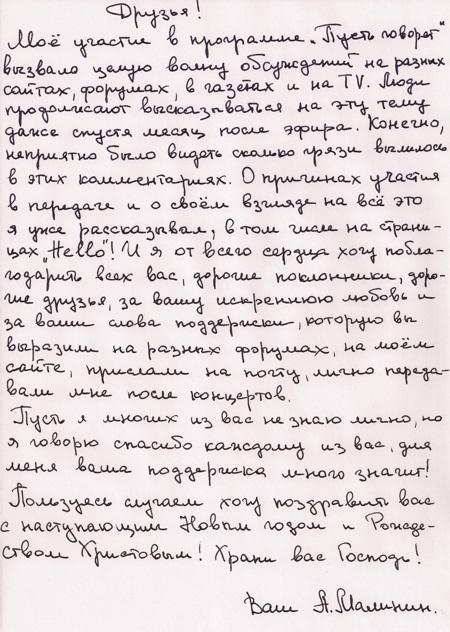 Друзья!
Моё участие в программе „Пусть говорят"
вызвало целую волну обсуждений на разных
сайтах, форумах, в газетах и на TV. Люди
продолжают высказываться на эту тему
даже спустя месяц после эфира. Конечно,
неприятно было видеть сколько грязи вылилось
в этих комментариях. О причинах участия
в передаче и о своём взгляде на всё это
я уже рассказывал, в том числе на страни-
цах „Hello"! И я от всего сердца хочу побла-
годарить всех вас, дорогие поклонники, доро-
гие друзья, за вашу искреннюю любовь и
за ваши слова поддержки, которую вы
выразили на разных форумах, на моём
сайте, прислали на почту, лично переда-
вали мне после концертов.
Пусть я многих из вас не знаю лично, но
я говорю спасибо каждому из вас, для
меня ваша поддержка много значит!
Пользуясь случаем хочу поздравить вас
с наступающим Новым годом и Рожде-
ством Христовым! Храни вас Господь!
Ваш А. Малинин.